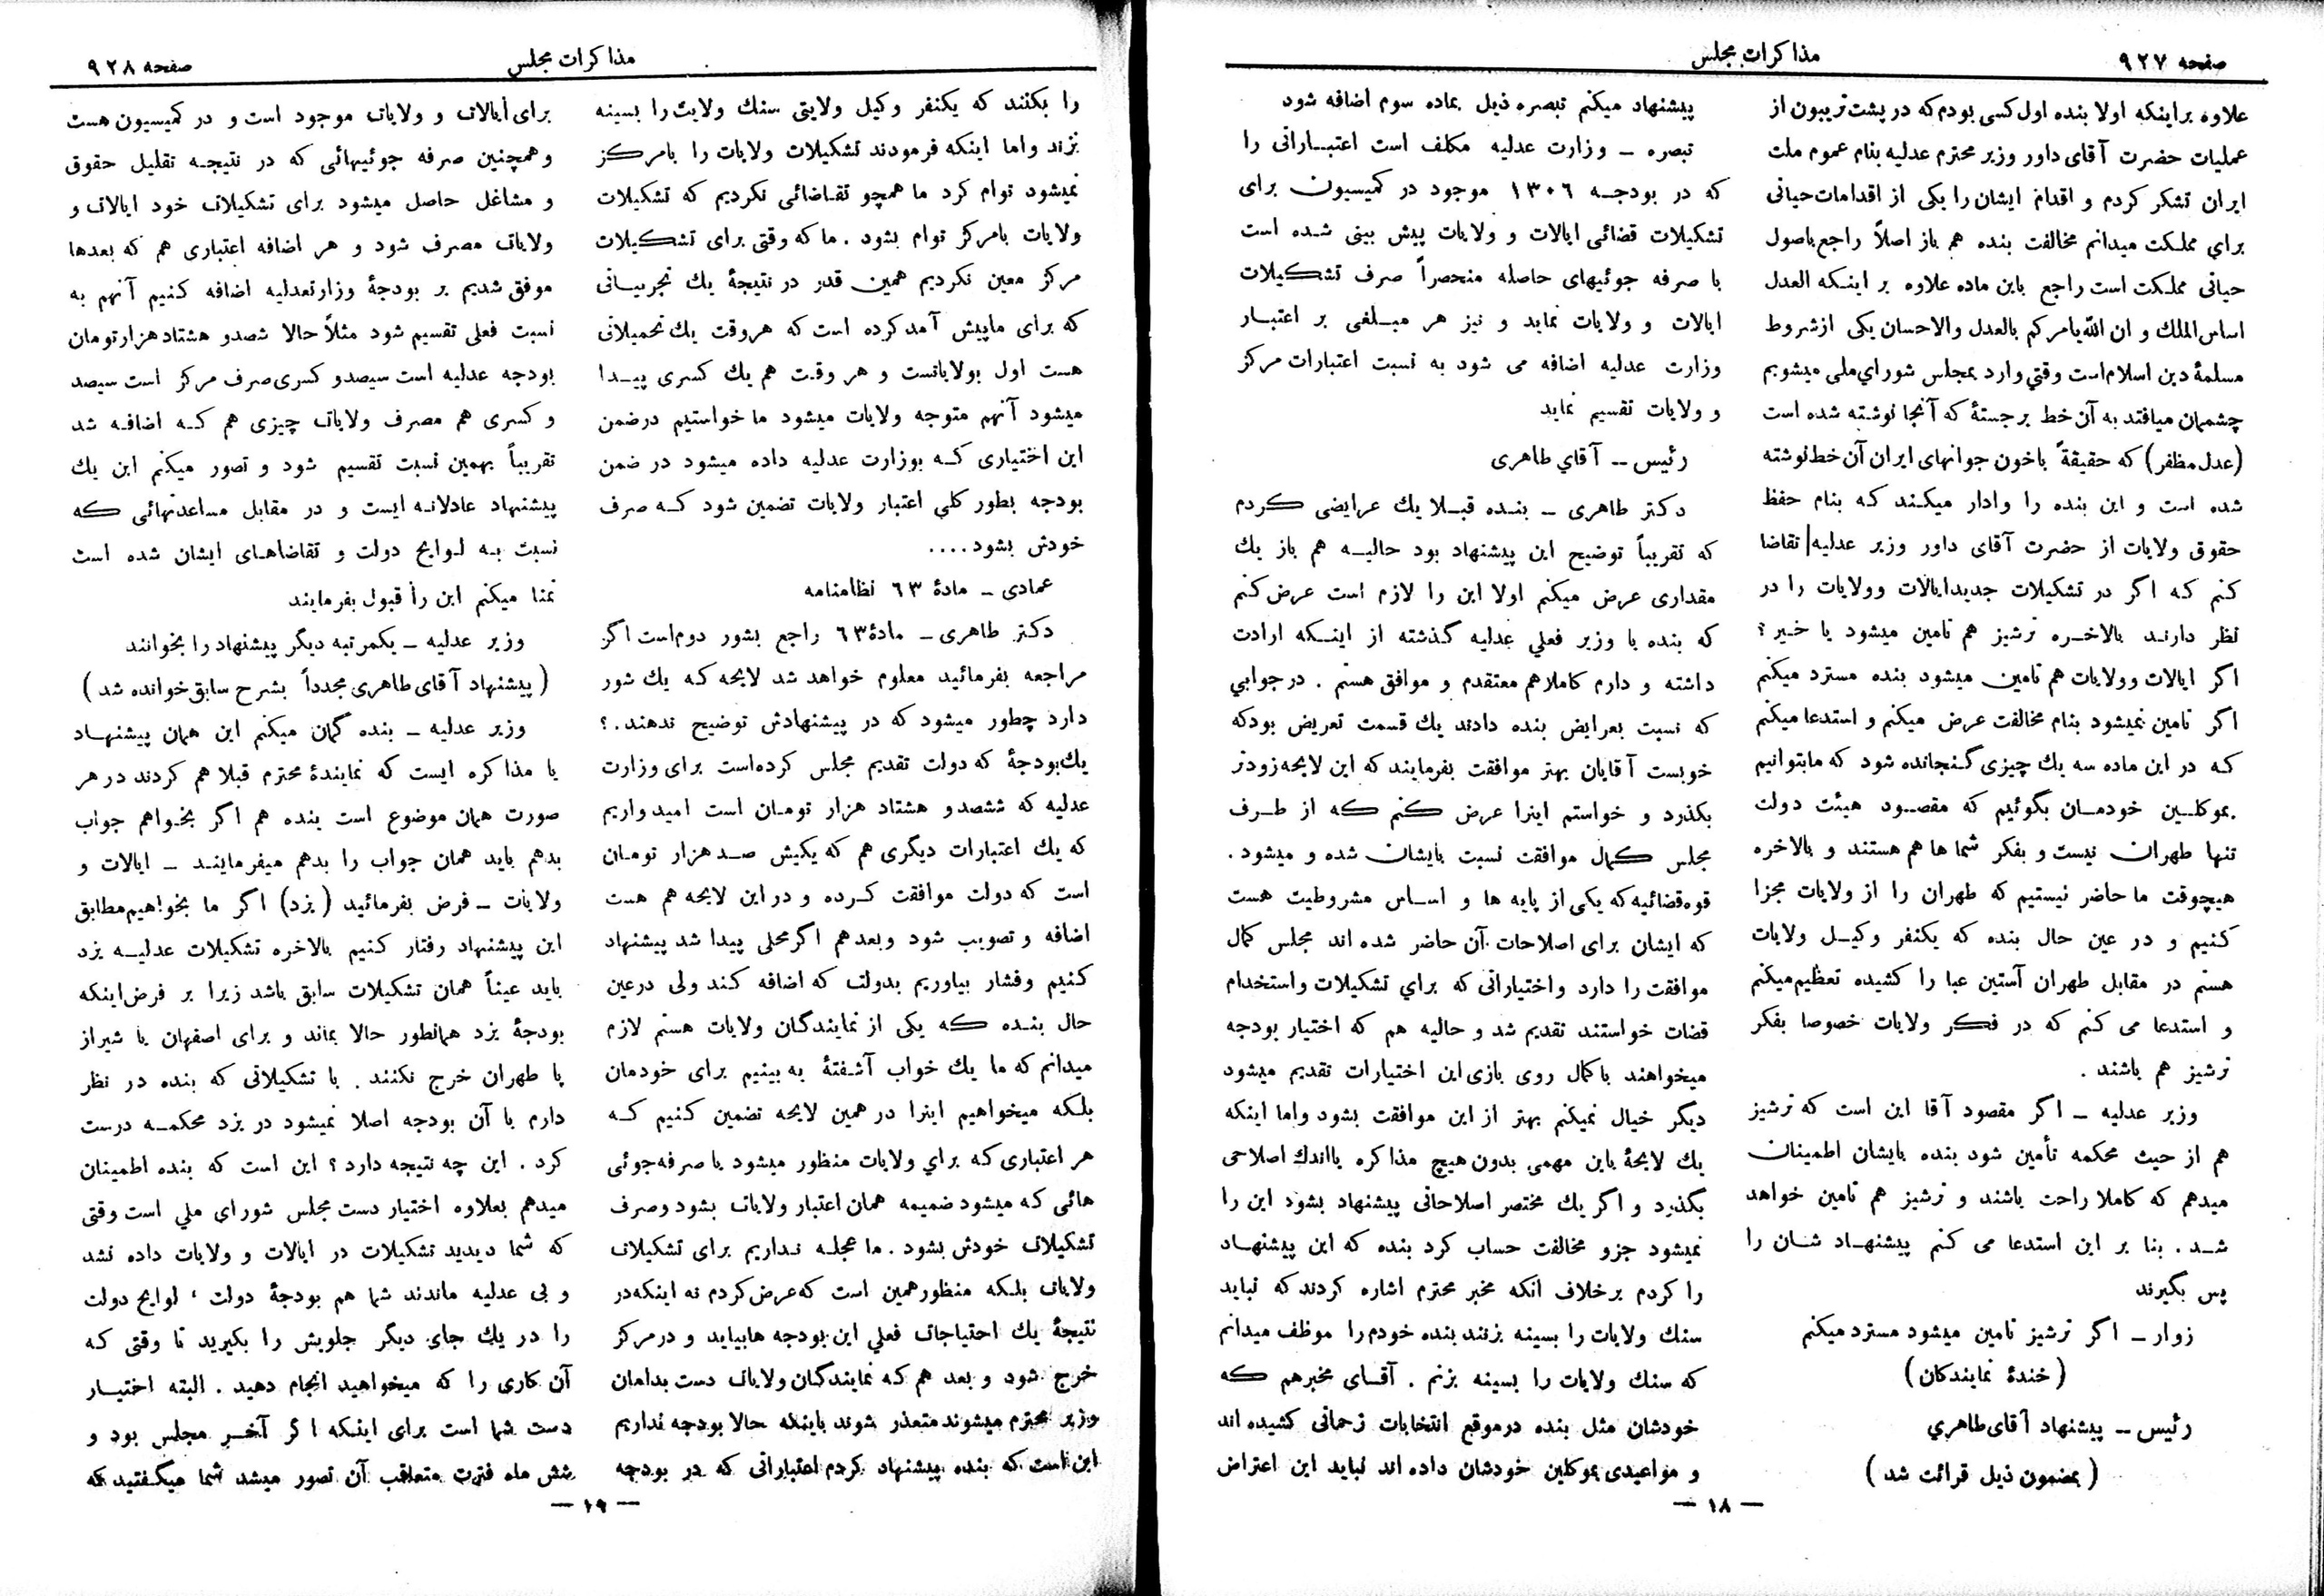 صفحه ۹۲۷
مذاکرات مجلس
علاوه براینکه اولا بنده اول کسی بودم که در پشت تریبون از
عملیات حضرت آقای داور وزیر محترم عدلیه بنام عموم ملت
ایران تشکر کردم و اقدام ایشان را یکی از اقدامات حیاتی
برای مملکت میدانم مخالفت بنده هم باز اصلاً راجع باصول
حیاتی مملکت است راجع باین ماده علاوه بر اینکه العدل
اساس الملك و ان الله یامرکم بالعدل والاحسان یکی ازشروط
مسلمۀ دین اسلام است وقتی وارد بمجلس شورای ملی میشویم
چشممان میافتد به آن خط برجستۀ که آنجا نوشته شده است
(عدل مظفر) که حقیقةً باخون جوانهای ایران آن خط نوشته
شده است و این بنده را وادار میکند که بنام حفظ
حقوق ولایات از حضرت آقای داور وزیر عدلیه تقاضا
کنم که اگر در تشکیلات جدیدایالات وولایات را در
نظر دارند بالاخره ترشیز هم تامین میشود یا خیر؟
اگر ایالات وولایات هم تامین میشود بنده مسترد میکنم
اگر تامین نمیشود بنام مخالفت عرض میکنم و استدعا میکنم
که در این ماده سه یك چیزی گنجانده شود که مابتوانیم
بموکلین خودمان بگوئیم که مقصود هیئت دولت
تنها طهران نیست و بفکر شما ها هم هستند و بالاخره
هیچوقت ما حاضر نیستیم که طهران را از ولایات مجزا
کنیم و در عین حال بنده که یکنفر وکیل ولایات
هستم در مقابل طهران آستین عبا را کشیده تعظیم میکنم
و استدعا می کنم که در فکر ولایات خصوصا بفکر
ترشیز هم باشند .
وزیر عدلیه ــ اگر مقصود آقا این است که ترشیز
هم از حیث محکمه تأمین شود بنده بایشان اطمینان
میدهم که کاملا راحت باشند و ترشیز هم تامین خواهد
شد . بنا بر این استدعا می کنم پیشنهاد شان را
پس بگیرند
زوار ــ اگر ترشیز تامین میشود مسترد میکنم
(خندۀ نمایندکان)
رئیس ــ پیشنهاد آقای طاهری
(بمضمون ذیل قرائت شد)
پیشنهاد میکنم تبصره ذیل بماده سوم اضافه شود
تبصره ــ وزارت عدلیه مکلف است اعتباراتی را
که در بودجه ۱۳۰۶ موجود در کمیسیون برای
تشکیلات قضائی ایالات و ولایات پیش بینی شده است
با صرفه جوئیهای حاصله منحصراً صرف تشکیلات
ایالات و ولایات نماید و نیز هر مبلغی بر اعتبار
وزارت عدلیه اضافه می شود به نسبت اعتبارات مرکز
و ولایات تقسیم نماید
رئیس ــ آقای طاهری
دکتر طاهری ــ بنده قبلا یك عرایضی کردم
که تقریباً توضیح این پیشنهاد بود حالیه هم باز یك
مقداری عرض میکنم اولا این را لازم است عرض کنم
که بنده با وزیر فعلي عدلیه گذشته از اینکه ارادت
داشته و دارم کاملاهم معتقدم و موافق هستم . در جوابی
که نسبت بعرایض بنده دادند یك قسمت تعریض بود که
خوبست آقایان بهتر موافقت بفرمایند که این لایحه زودتر
بکذرد و خواستم اینرا عرض کنم که از طرف
مجلس کمال موافقت نسبت بایشان شده و میشود .
قوه قضائیه که یکی از پایه ها و اساس مشروطیت هست
که ایشان برای اصلاحات آن حاضر شده اند مجلس کمال
موافقت را دارد واختیاراتی که برای تشکیلات واستخدام
قضات خواستند تقدیم شد و حالیه هم که اختیار بودجه
میخواهند باکمال روی بازی این اختیارات تقدیم میشود
دیگر خیال نمیکنم بهتر از این موافقت بشود واما اینکه
یك لایحۀ باین مهمی بدون هیچ مذاکره یااندك اصلاحی
بگذرد و اگر یك مختصر اصلاحاتی پیشنهاد بشود این را
نمیشود جزو مخالفت حساب کرد بنده که این پیشنهاد
را کردم برخلاف انکه مخبر محترم اشاره کردند که نباید
سنك ولایات را بسینه بزنند بنده خودم را موظف میدانم
که سنك ولایات را بسینه بزنم . آقای مخبرهم که
خودشان مثل بنده درموقع انتخابات زحماتی کشیده اند
و مواعیدی بموکلین خودشان داده اند نباید این اعتراض
— ۱۸ —
مذاکرات مجلس
صفحه ۹۲۸
را بکنند که یکنفر وکیل ولایتی سنك ولایت را بسینه
بزند واما اینکه فرمودند تشکیلات ولایات را بامرکز
نمیشود توام کرد ما همچو تقاضائی نکردیم که تشکیلات
ولایات بامرکز توام بشود . ما که وقتی برای تشکیلات
مرکز معین نکردیم همین قدر در نتیجۀ یك تجربیاتی
که برای ماپیش آمد کرده است که هروقت یك تحمیلاتی
هست اول بولایاتست و هر وقت هم یك کسری پیدا
میشود آنهم متوجه ولایات میشود ما خواستیم درضمن
این اختیاری که بوزارت عدلیه داده میشود در ضمن
بودجه بطور کلی اعتبار ولایات تضمین شود که صرف
خودش بشود....
عمادی ــ مادۀ ۶۳ نظامنامه
دکتر طاهری ــ مادۀ ۶۳ راجع بشور دوم است اگر
مراجعه بفرمائید معلوم خواهد شد لایحه که یك شور
دارد چطور میشود که در پیشنهادش توضیح ندهند .؟
یك بودجۀ که دولت تقدیم مجلس کرده‌است برای وزارت
عدلیه که ششصدو هشتاد هزار تومان است امیدواریم
که یك اعتبارات دیگری هم که یکیش صد هزار تومان
است که دولت موافقت کرده و در این لایحه هم هست
اضافه و تصویب شود وبعدهم اگر محلی پیدا شد پیشنهاد
کنیم وفشار بیاوریم بدولت که اضافه کند ولی درعین
حال بنده که یکی از نمایندگان ولایات هستم لازم
میدانم که ما یك خواب آشفتۀ به بینیم برای خودمان
بلکه میخواهیم اینرا در همین لایحه تضمین کنیم که
هر اعتباری که برای ولایات منظور میشود یا صرفه جوئی
هائی که میشود ضمیمه همان اعتبار ولایات بشود وصرف
تشکیلات خودش بشود . ما عجله نداریم برای تشکیلات
ولایات بلکه منظورهمین است که عرض کردم نه اینکه در
نتیجۀ یك احتیاجات فعلی این بودجه هابیاید و درمرکز
خرج شود و بعد هم که نمایندگان ولایات دست بدامان
وزیر محترم میشوند متعذر شوند باینکه حالا بودجه نداریم
این است که بنده پیشنهاد کردم اعتباراتی که در بودجه
برای ایالات و ولایات موجود است و در کمیسیون هست
و همچنین صرفه جوئیهائی که در نتیجه تقلیل حقوق
و مشاغل حاصل میشود برای تشکیلات خود ایالات و
ولایات مصرف شود و هر اضافه اعتباری هم که بعدها
موفق شدیم بر بودجۀ وزارتعدلیه اضافه کنیم آنهم به
نسبت فعلی تقسیم شود مثلاً حالا شصدو هشتاد هزارتومان
بودجه عدلیه است سیصدو کسری صرف مرکز است سیصد
و کسری هم مصرف ولایات چیزی هم که اضافه شد
تقریباً بهمین نسبت تقسیم شود و تصور میکنم این یك
پیشنهاد عادلانه ایست و در مقابل مساعدتهائی که
نسبت به لوایح دولت و تقاضاهای ایشان شده است
تمنا میکنم این را قبول بفرمایند
وزیر عدلیه ــ یکمرتبه دیگر پیشنهاد را بخوانند
(پیشنهاد آقای طاهری مجدداً بشرح سابق خوانده شد)
وزیر عدلیه ــ بنده گمان میکنم این همان پیشنهاد
یا مذاکره ایست که نمایندۀ محترم قبلا هم کردند در هر
صورت همان موضوع است بنده هم اگر بخواهم جواب
بدهم باید همان جواب را بدهم میفرمایند ــ ایالات و
ولایات ــ فرض بفرمائید (یزد) اگر ما بخواهیم مطابق
این پیشنهاد رفتار کنیم بالاخره تشکیلات عدلیه یزد
باید عیناً همان تشکیلات سابق باشد زیرا بر فرض اینکه
بودجۀ یزد همانطور حالا بماند و برای اصفهان یا شیراز
یا طهران خرج نکنند . با تشکیلاتی که بنده در نظر
دارم با آن بودجه اصلا نمیشود در یزد محکمه درست
کرد . این چه نتیجه دارد؟ این است که بنده اطمینان
میدهم بعلاوه اختیار دست مجلس شورای ملی است وقتی
که شما دیدید تشکیلات در ایالات و ولایات داده نشد
و بی عدلیه ماندند شما هم بودجۀ دولت ، لوایح دولت
را در یك جای دیگر جلویش را بکیرید تا وقتی که
آن کاری را که میخواهید انجام دهید . البته اختیار
دست شما است برای اینکه اگر آخر مجلس بود و
شش ماه فترت متعاقب آن تصور میشد شما میگفتید که
— ۱۹ —